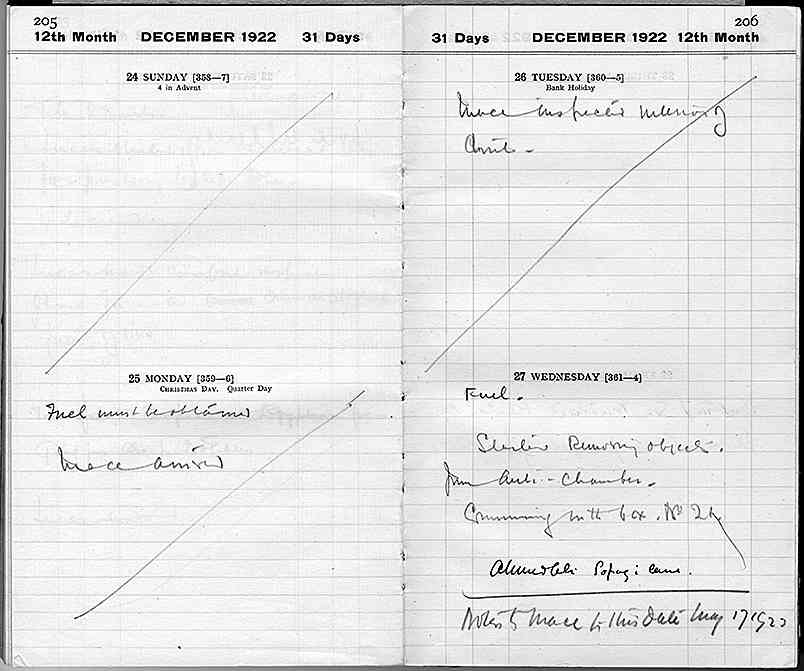 205
12th Month DECEMBER 1922 31 Days
24 SUNDAY [358—7]
4 in Advent
25 MONDAY [359—6]
CHRISTMAS DAY. Quarter Day
Fuel must be obtained
Mace arrived
206
31 Days DECEMBER 1922 12th Month
26 TUESDAY [360—5]
Bank Holiday
Mace inspected interior of
Tomb -
27 WEDNESDAY [361—4]
Fuel.
Started Removing objects.
from Ante-Chamber.
Commencing with box. No 21
Ahmed Ali came.
Notes to Mace to this Date May 17 1923